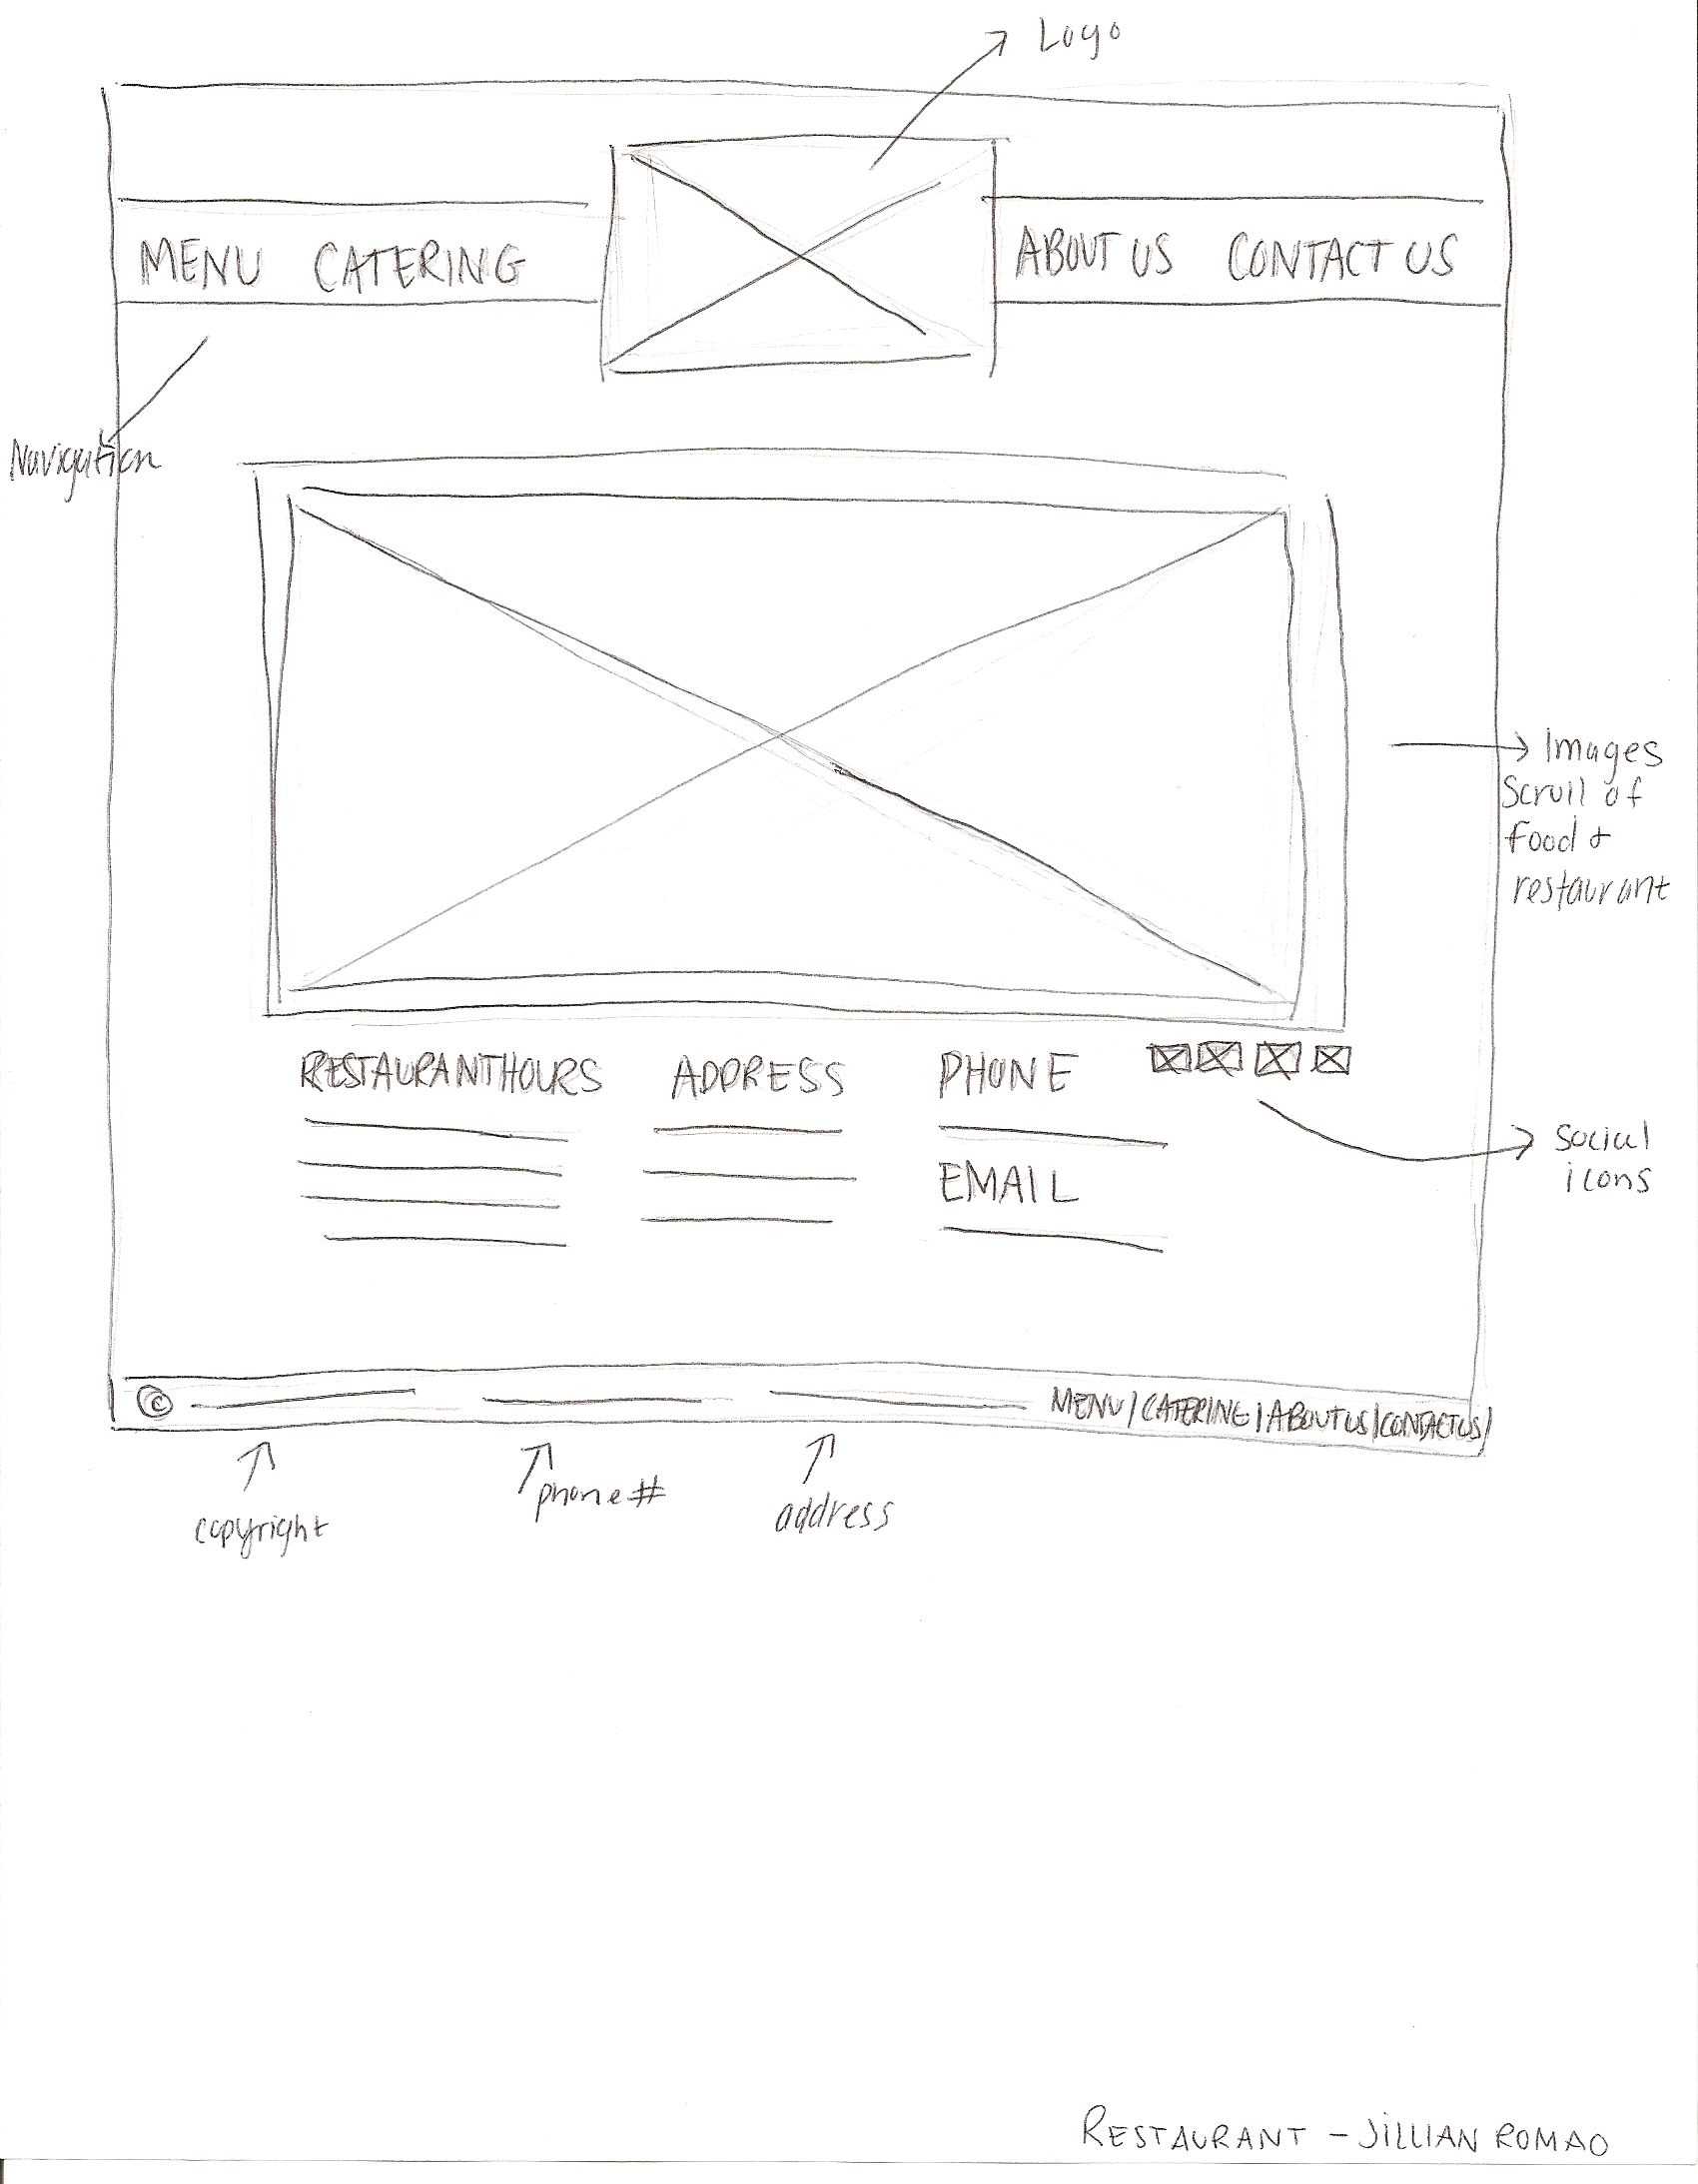 Logo
MENU CATERING ABOUT US CONTACT US
Navigation
Images
Scroll of
food +
restaurant
RESTAURANT HOURS ADDRESS PHONE
EMAIL
social
icons
© MENU / CATERING / ABOUT US / CONTACT US /
copyright
phone #
address
RESTAURANT - JILLIAN ROMAO